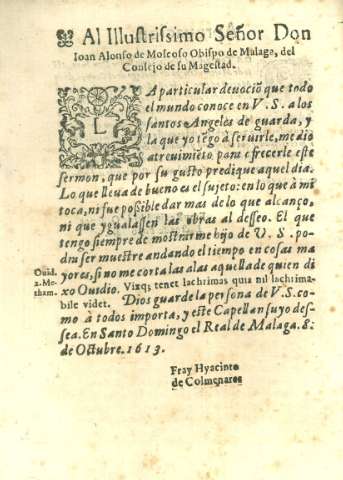 Al Illustrissimo Señor Don
Ioan Alonso de Moscoso Obispo de Malaga, del
Consejo de su Magestad.
LA particular deuociõ que todo
el mundo conoce en V. S. a los
santos Angeles de guarda, y
la que yo tẽgo à seruirle, me dio
atreuimiẽto para ofrecerle este
sermon, que por su gusto predique aquel dia.
Lo que lleua de bueno es el sujeto: en lo que à mi
toca, ni fue possible dar mas de lo que alcanço,
ni que ygualassen las obras al desseo. El que
tengo siempre de mostrarme hijo de V. S. po-
dru ser muestre andando el tiempo en cosas ma
yores, si no me corta las alas aquella de quien di
xo Ouidio. Vixq; tenet lachrimas quia nil lachrima-
bile videt. Dios guarde la persona de V. S. co-
mo à todos importa, y este Capellan suyo des-
sea. En Santo Domingo el Real de Malaga. 8.
de Octubre. 1613.
Ouid.
2. Me-
tham.
Fray Hyacinto
de Colmenares